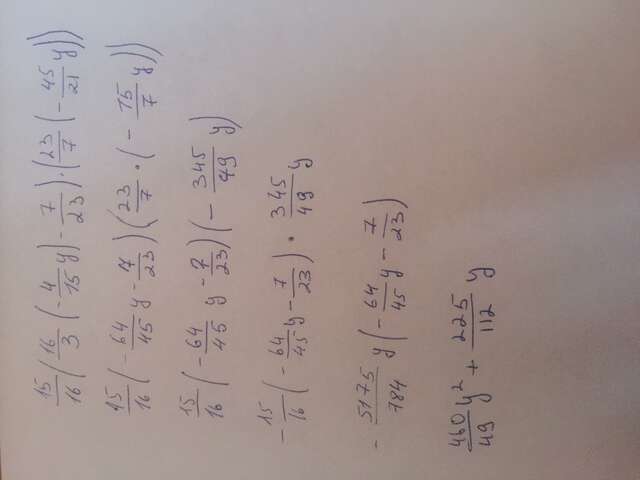 15/16 (16/3 (-4/15 y) - 7/23) · (23/7 (-45/21 y))
15/16 (-64/45 y - 7/23) (23/7 · (-15/7 y))
15/16 (-64/45 y - 7/23) (-345/49 y)
-15/16 (-64/45 y - 7/23) · 345/49 y
-5175/784 y (-64/45 y - 7/23)
460/49 y² + 225/112 y